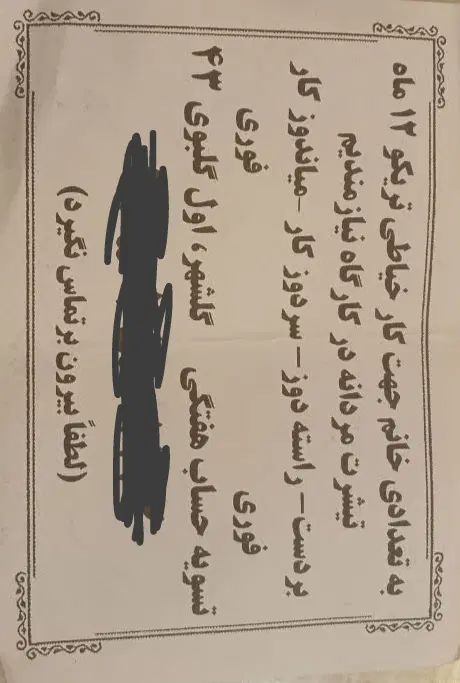 به تعدادی خانم جهت کار خیاطی تریکو ۱۲ ماه
تیشرت مردانه در کارگاه نیازمندیم
بردست - راسته دوز - سردوز کار - میاندوز کار
فوری فوری
تسویه حساب هفتگی گلشهر، اول گلبوی ۴۳
(لطفاً بیرون بر تماس نگیرد)